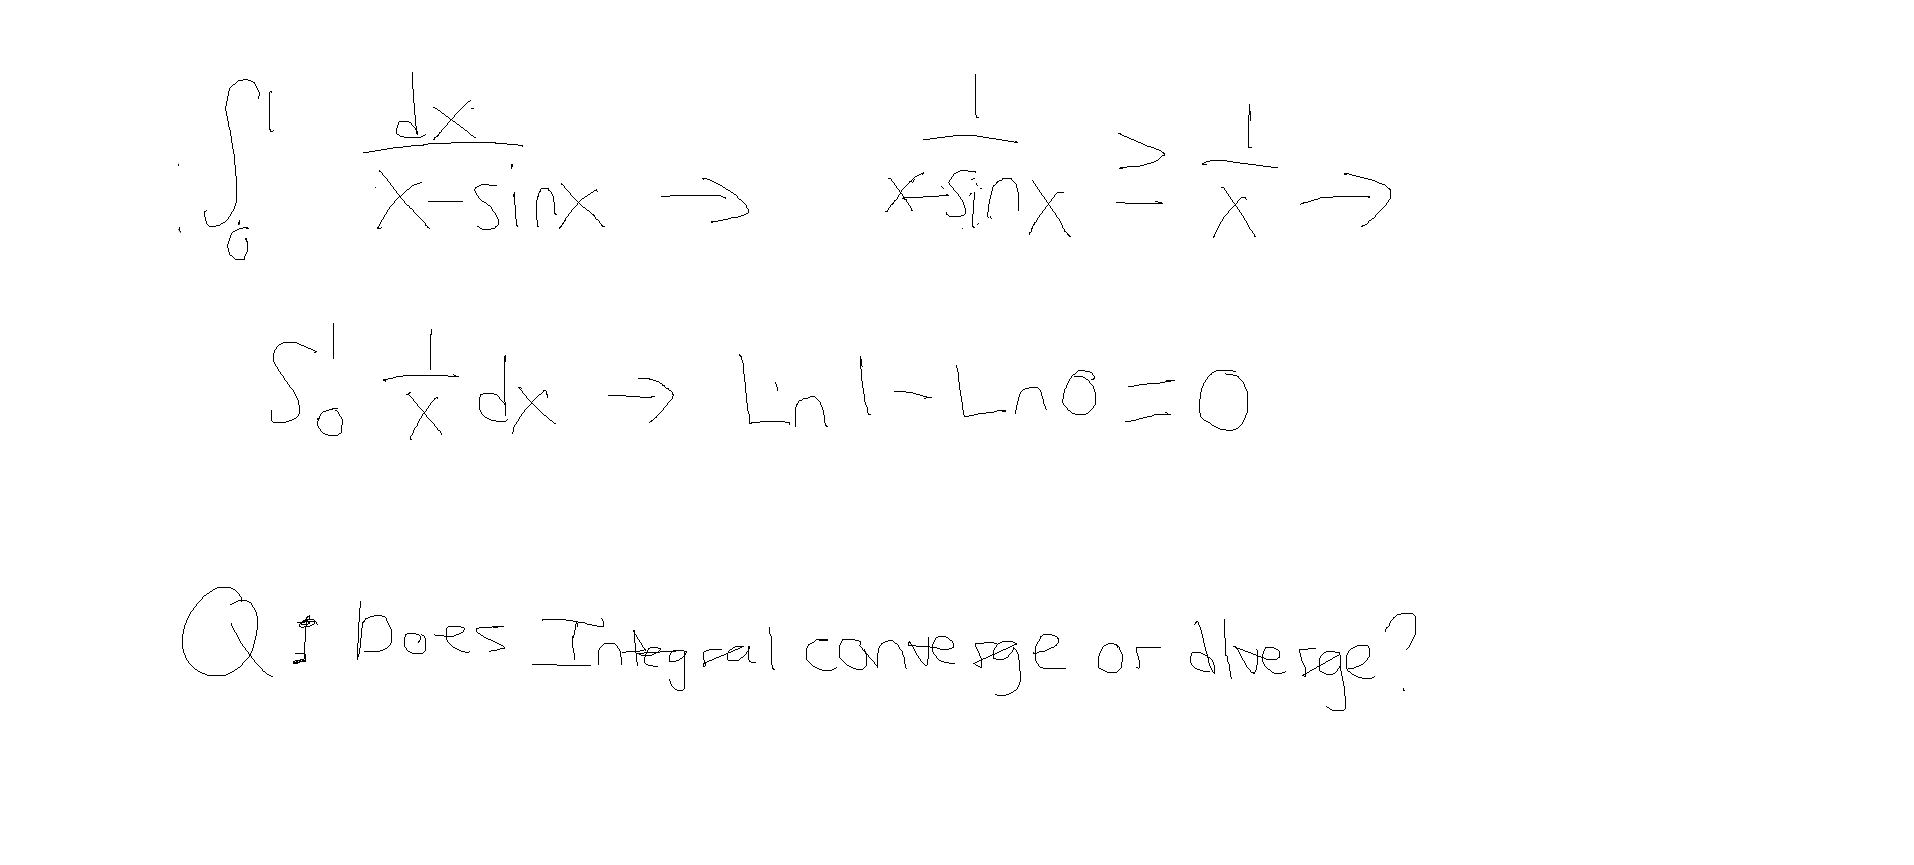 ∫₀¹ dx/(x-sinx) → 1/(x-sinx) ≥ 1/x →
∫₀¹ 1/x dx → Ln 1 - Ln 0 = 0
Q: Does Integral converge or diverge?